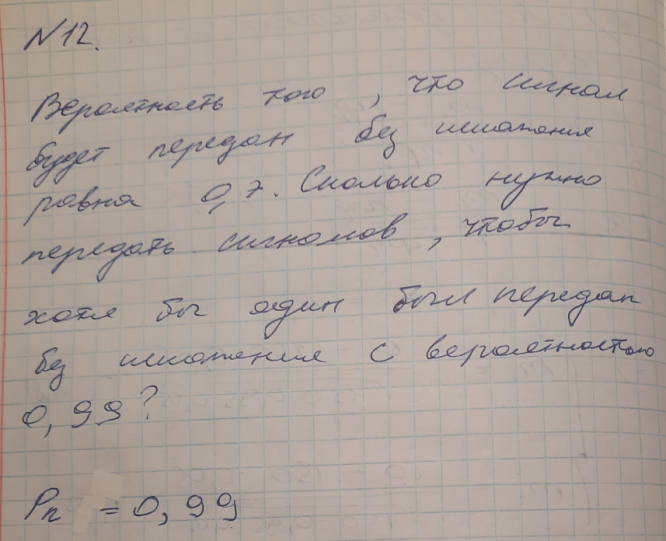 N12.
Вероятность того, что сигнал
будет передан без искажения
равна 0,7. Сколько нужно
передать сигналов, чтобы
хотя бы один был передан
без искажения с вероятностью
0,99?
Pn = 0,99